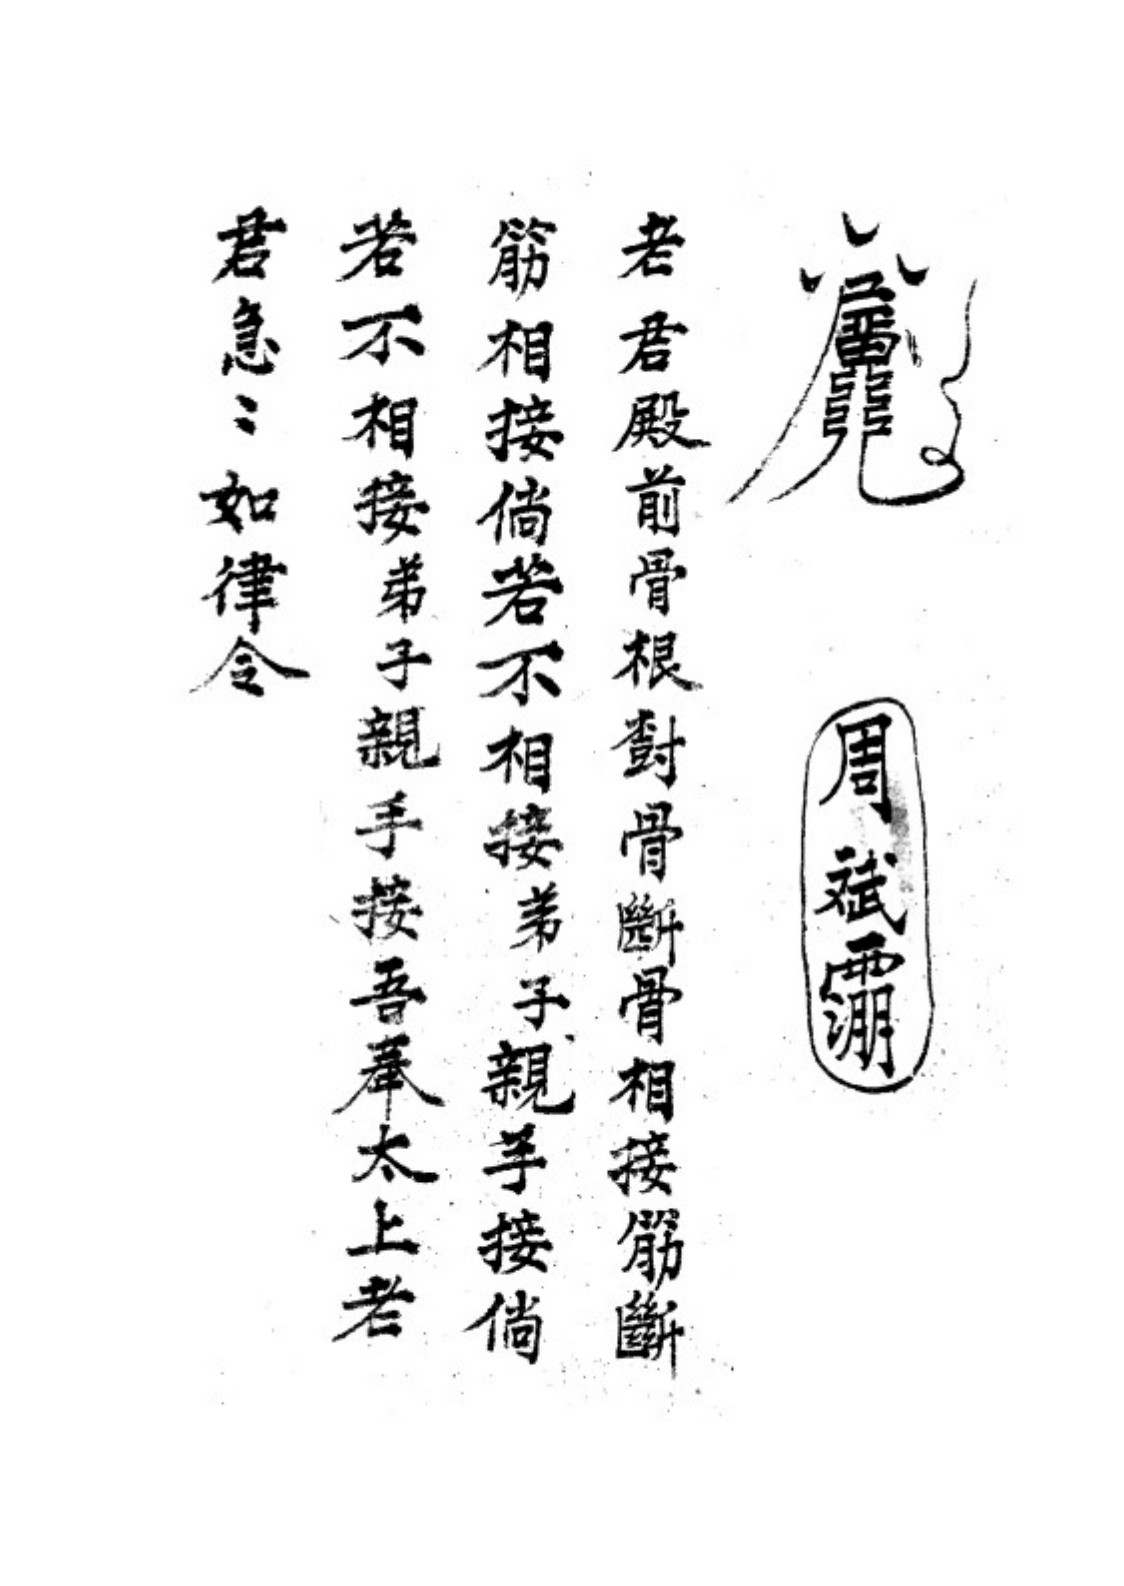 周斌
老君殿前骨根對骨斷骨相接筋斷
筋相接倘若不相接弟子親手接倘
若不相接弟子親手接吾奉太上老
君急〻如律令